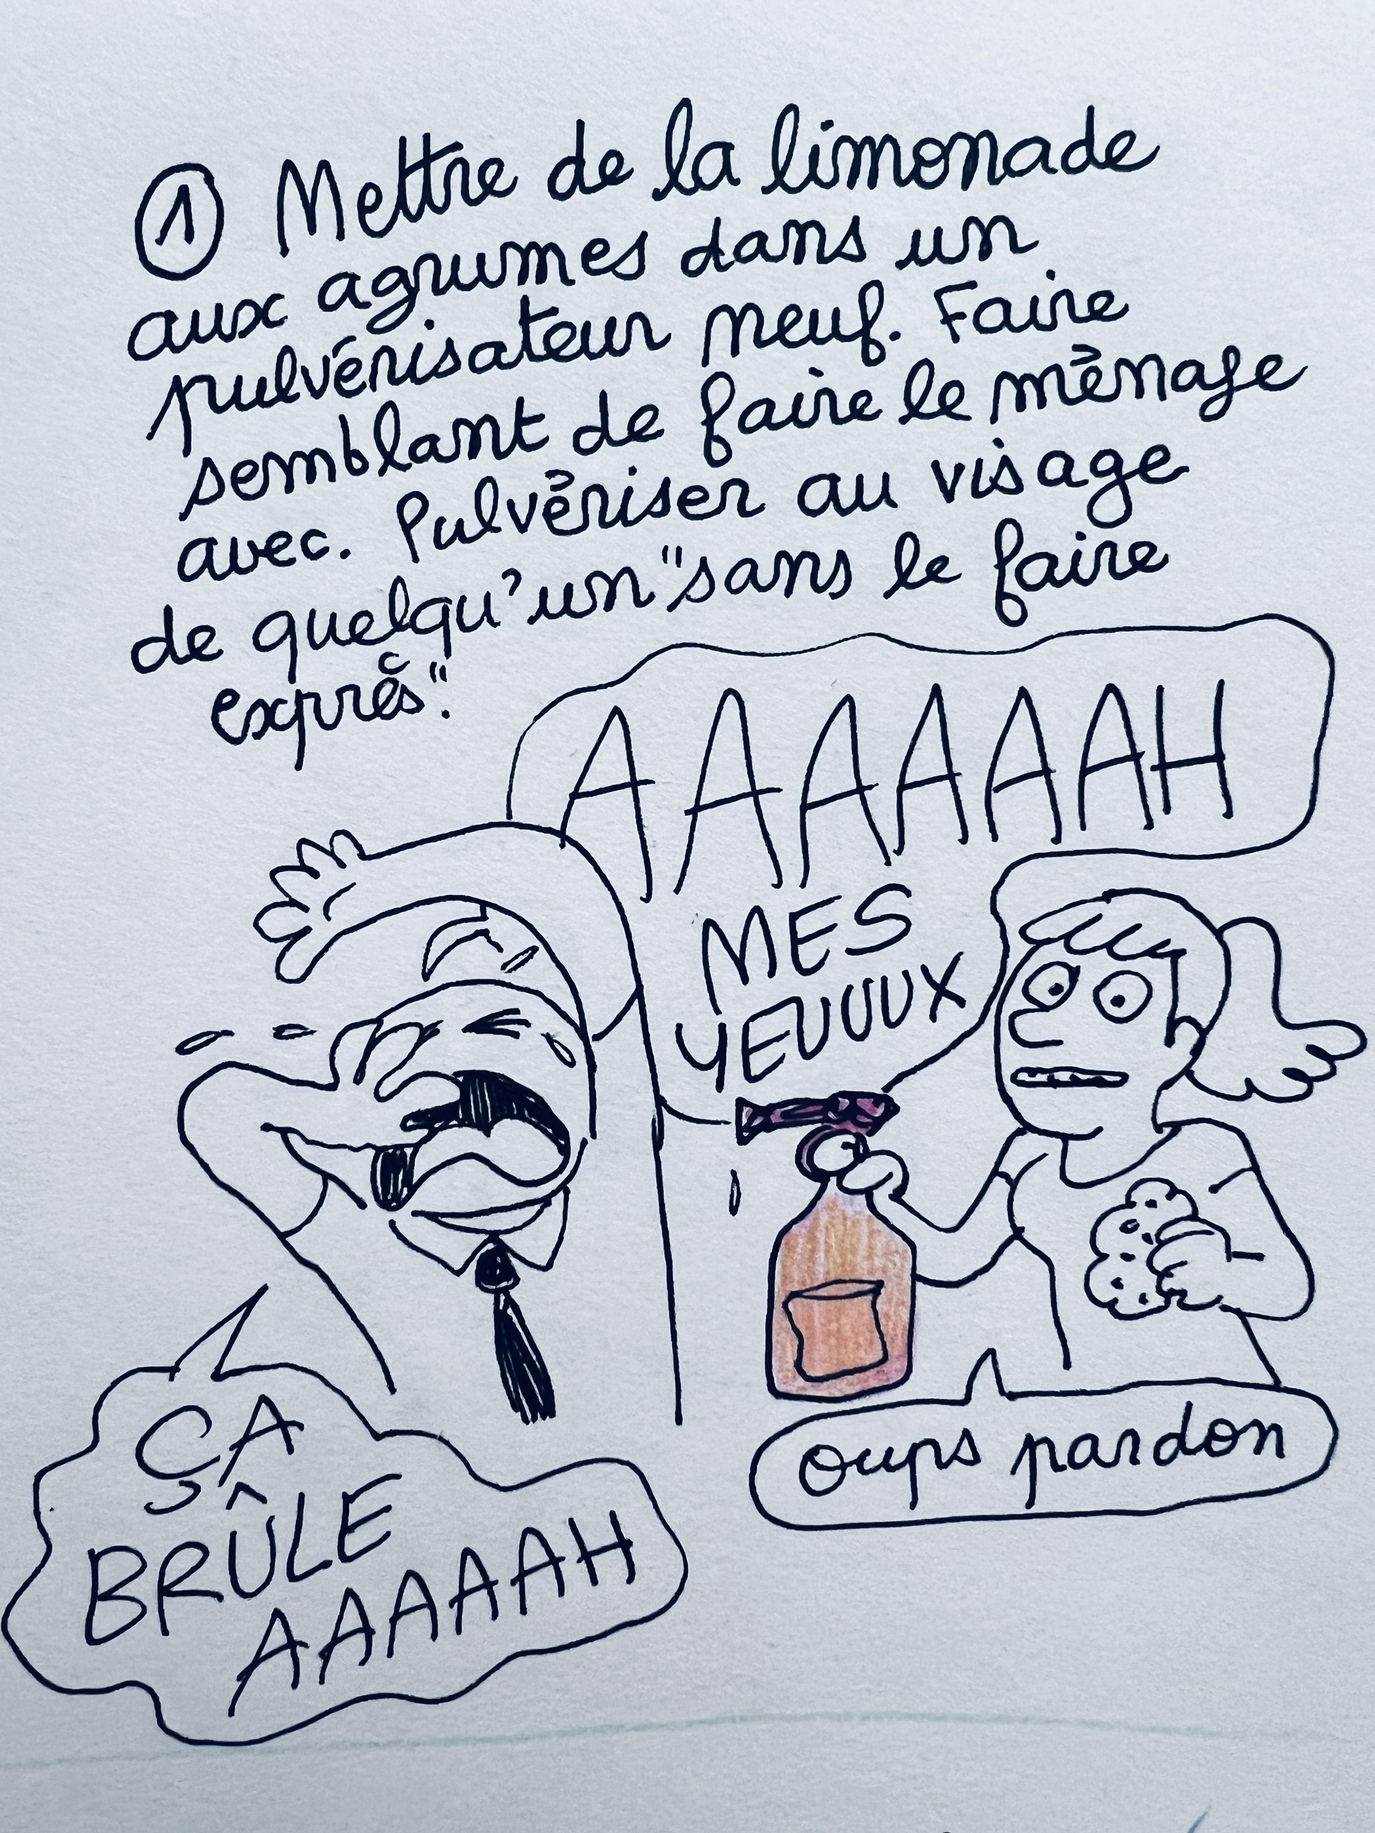 ① Mettre de la limonade
aux agrumes dans un
pulvérisateur neuf. Faire
semblant de faire le ménage
avec. Pulvériser au visage
de quelqu'un "sans le faire
exprès".
AAAAAAH
MES
YEUUUX
ÇA
BRÛLE
AAAAAH
oups pardon